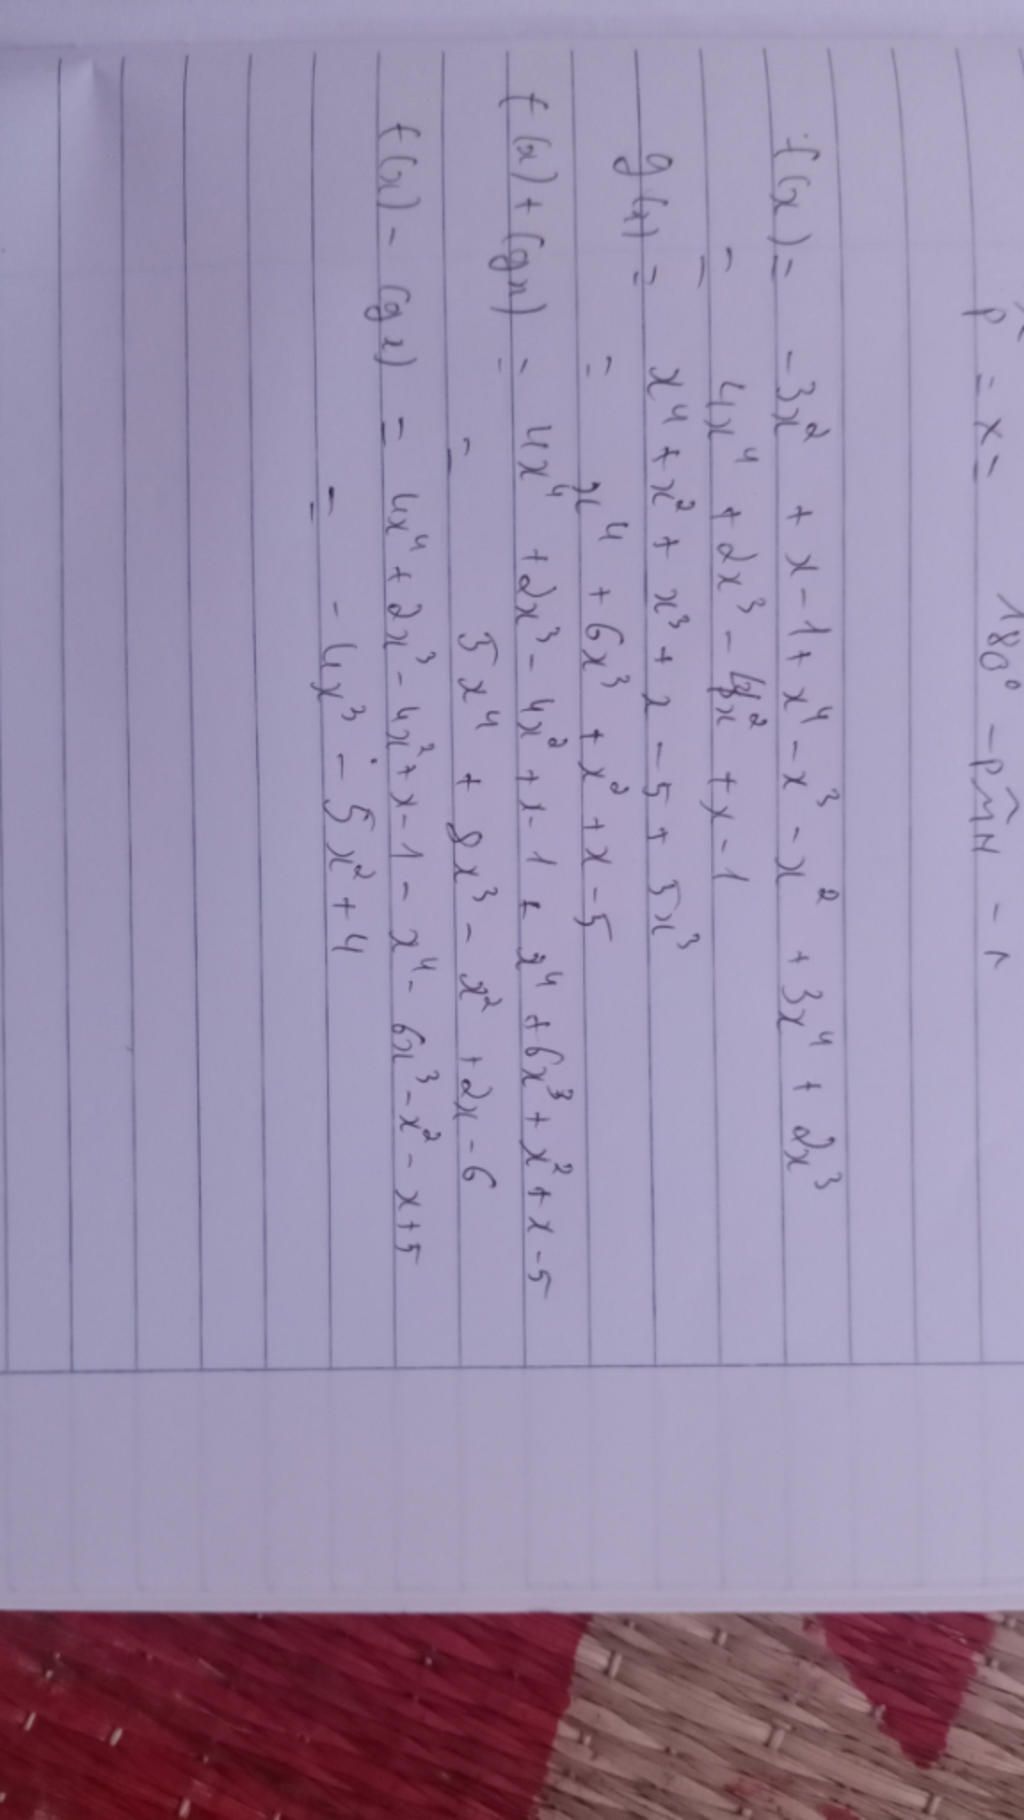 P̂ = x = 180° - PM̂N -
f(x) = -3x² + x - 1 + x⁴ - x³ - x² + 3x⁴ + 2x³
= 4x⁴ + 2x³ - 4x² + x - 1
g(x) = x⁴ + x² + x³ + x - 5 + 5x³
= x⁴ + 6x³ + x² + x - 5
f(x) + (gx) = 4x⁴ + 2x³ - 4x² + x - 1 + x⁴ + 6x³ + x² + x - 5
= 5x⁴ + 8x³ - x² + 2x - 6
f(x) - (gx) = 4x⁴ + 2x³ - 4x² + x - 1 - x⁴ - 6x³ - x² - x + 5
= - 4x³ - 5x² + 4